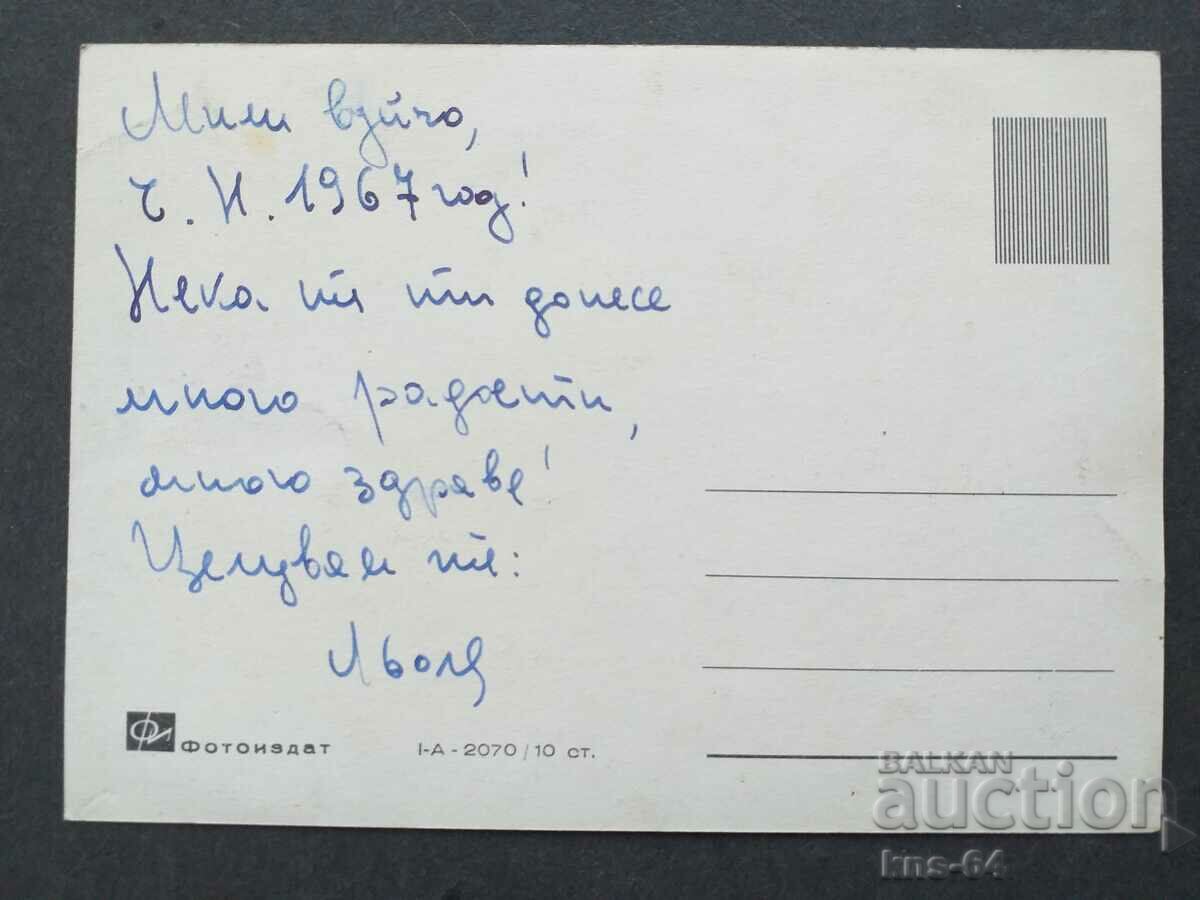 Мили вуйчо,
Ч. Н. 1967 год!
Нека тя ти донесе
много радости,
много здраве!
Целувам те:
Фотоиздат
I-A-2070/10 ст.
BALKAN
auction
kns-64